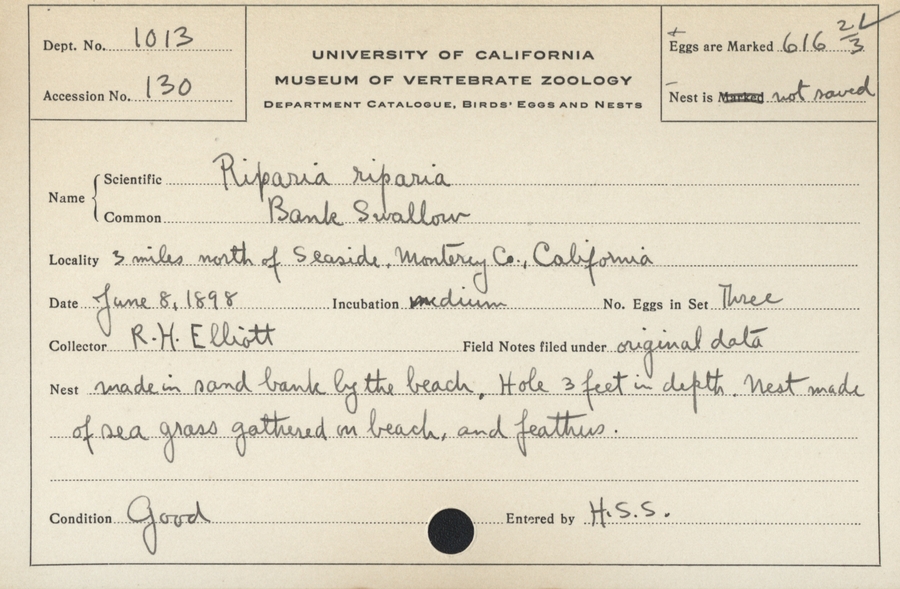 Dept. No. 1013
Accession No. 130
UNIVERSITY OF CALIFORNIA
MUSEUM OF VERTEBRATE ZOOLOGY
DEPARTMENT CATALOGUE, BIRDS' EGGS AND NESTS
Eggs are Marked 616 2/3
Nest is Marked not saved
Name
Scientific Riparia riparia
Common Bank Swallow
Locality 3 miles north of Seaside, Monterey Co., California
Date June 8, 1898 Incubation medium No. Eggs in Set Three
Collector R. H. Elliott Field Notes filed under original data
Nest made in sand bank by the beach, Hole 3 feet in depth. Nest made
of sea grass gathered on beach, and feathers.
Condition Good Entered by H.S.S.